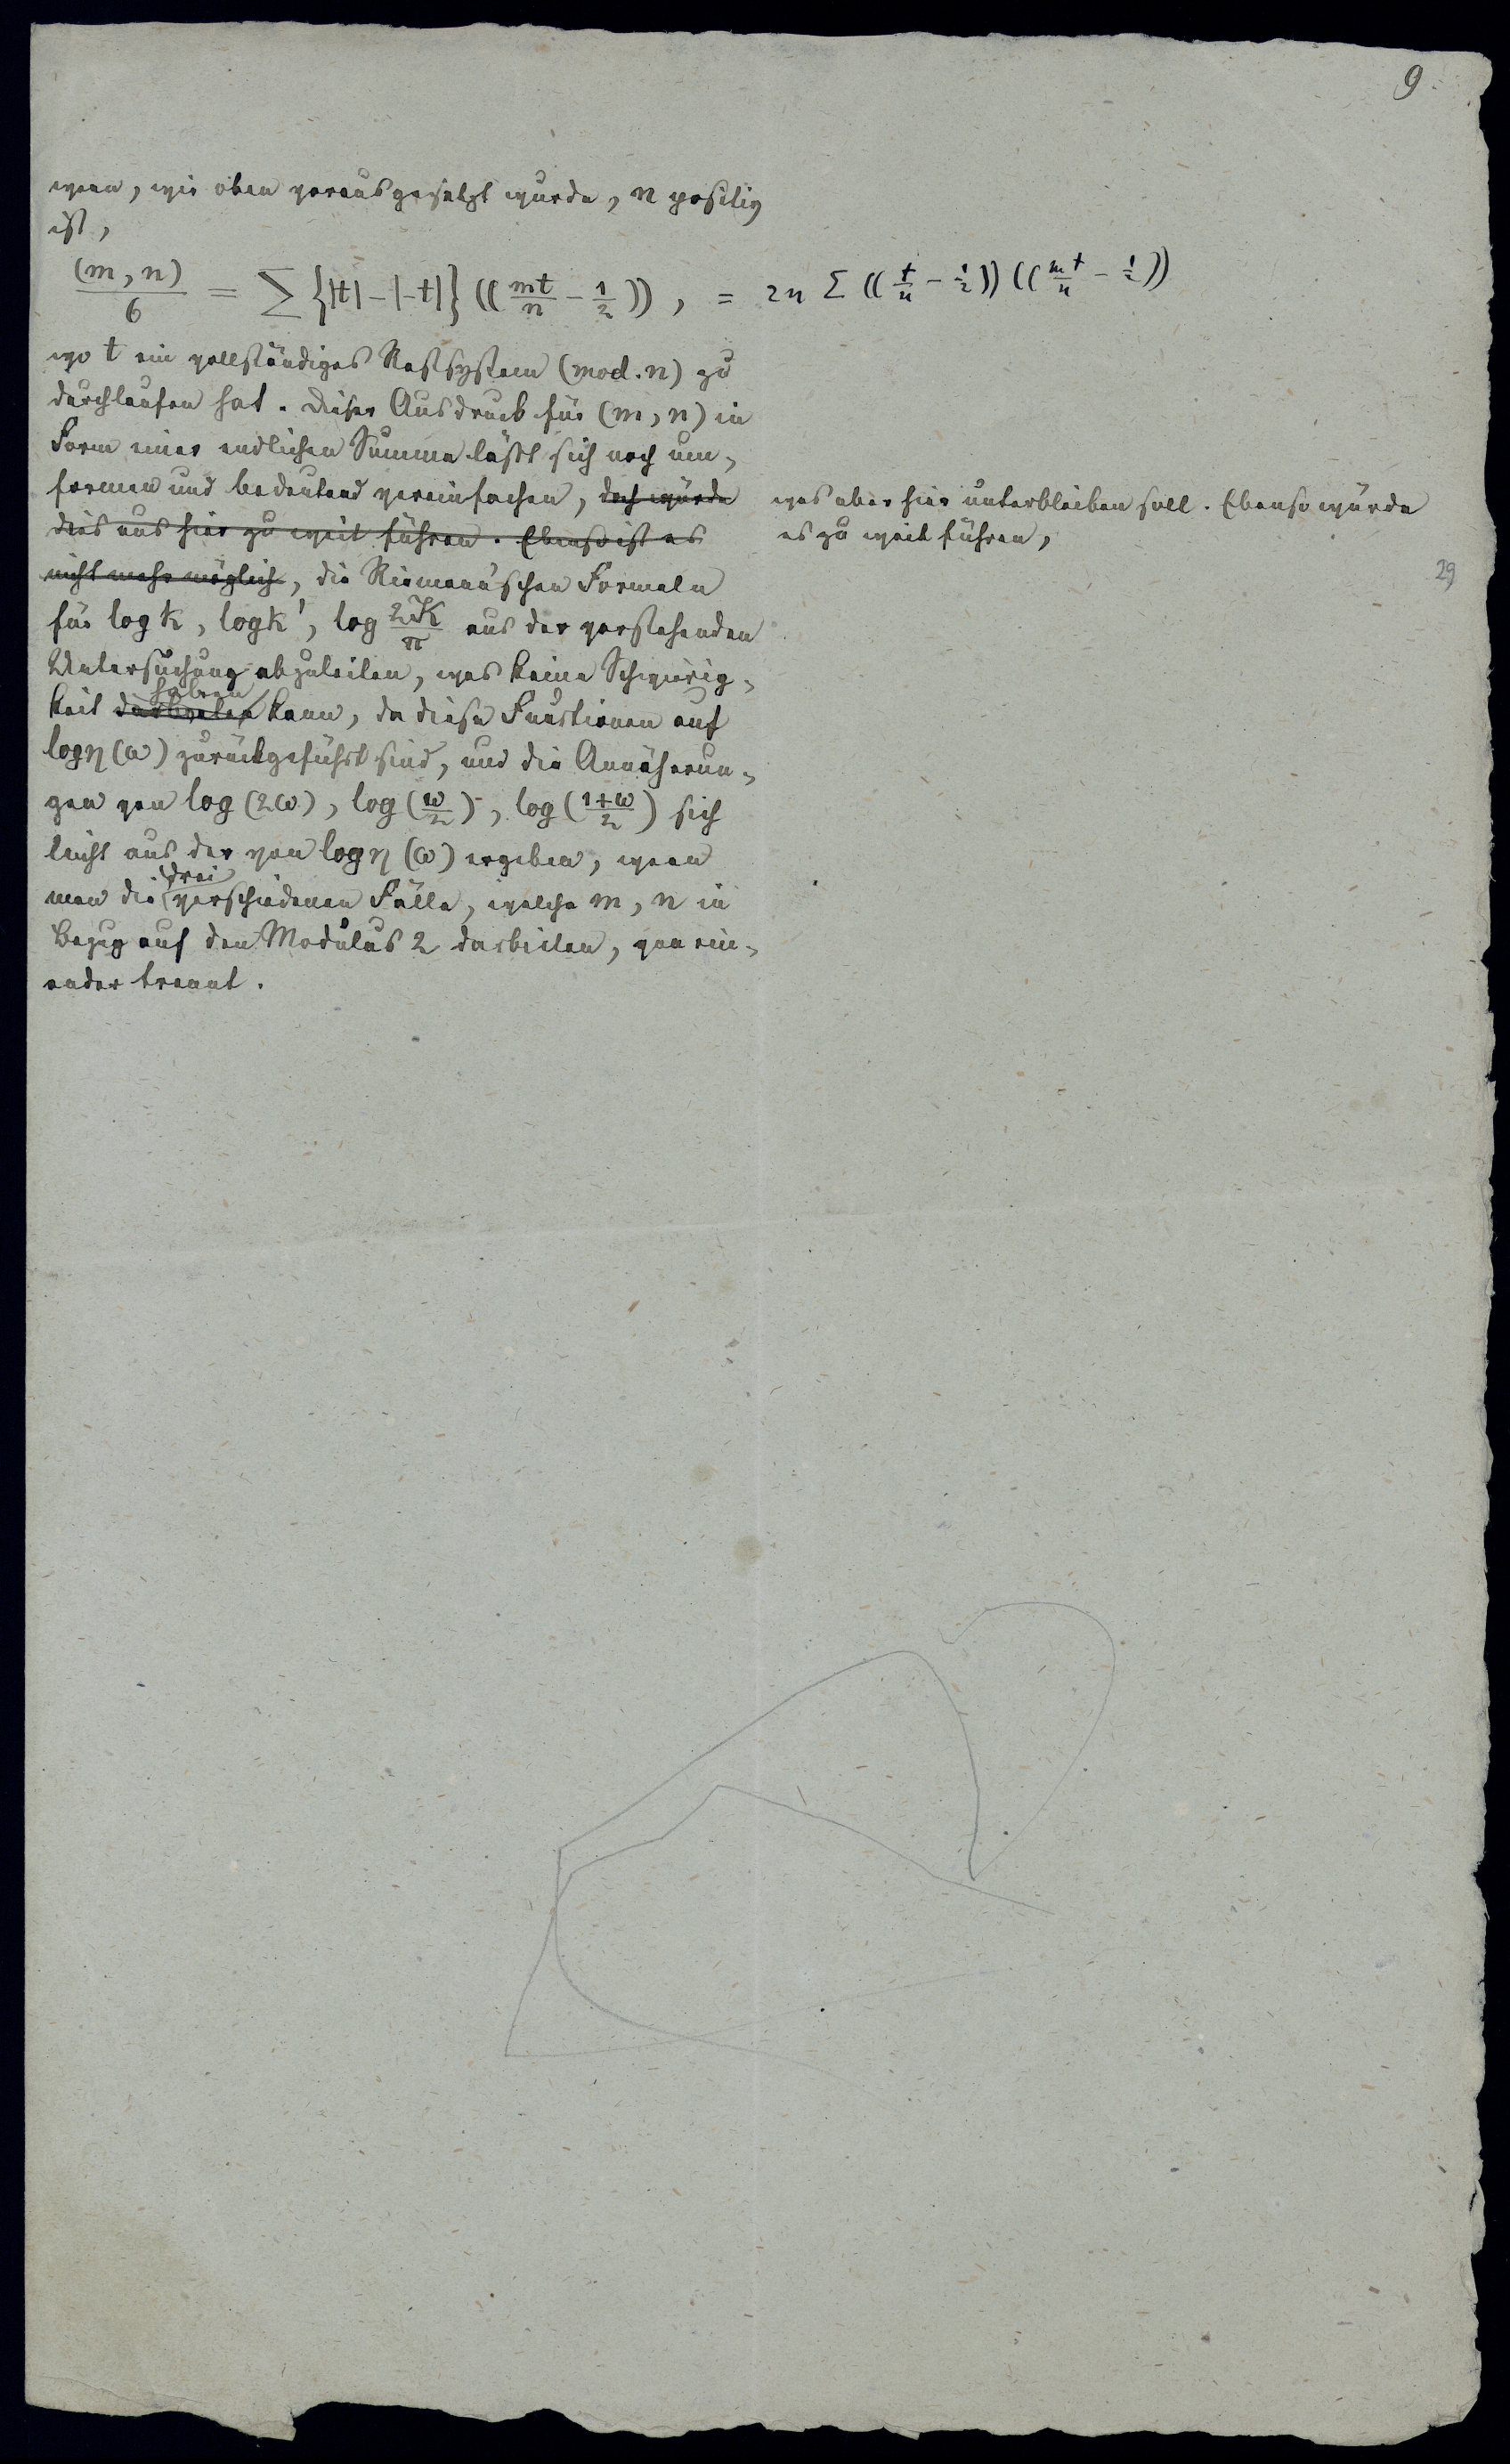 9.
wenn, wie oben vorausgesetzt wurde, n positiv
ist,
(m, n)/6 = Σ {|t| − |−t|} ((mt/n − 1/2)), = 2n Σ ((t/n − 1/2)) ((mt/n − 1/2))
wo t ein vollständiges Restsystem (mod. n) zu
durchlaufen hat. Dieser Ausdruck für (m, n) in
Form einer endlichen Summe läßt sich noch um-
formen und bedeutend vereinfachen, doch würde
dies uns hier zu weit führen. Ebenso ist es
nicht mehr möglich, die Riemann'schen Formeln
was aber hier unterbleiben soll. Ebenso würde
es zu weit führen,
29
für log k, log k', log 2K/π aus der vorstehenden
Untersuchung abzuleiten, was keine Schwierig-
haben
keit darbieten kann, da diese Functionen auf
log η (ω) zurückgeführt sind, und die Annäherun-
gen von log (2ω), log (ω/2), log (1+ω/2) sich
leicht aus der von log η (ω) ergeben, wenn
drei
man die verschiedenen Fälle, welche m, n in
Bezug auf den Modulus 2 darbieten, von ein-
ander trennt.